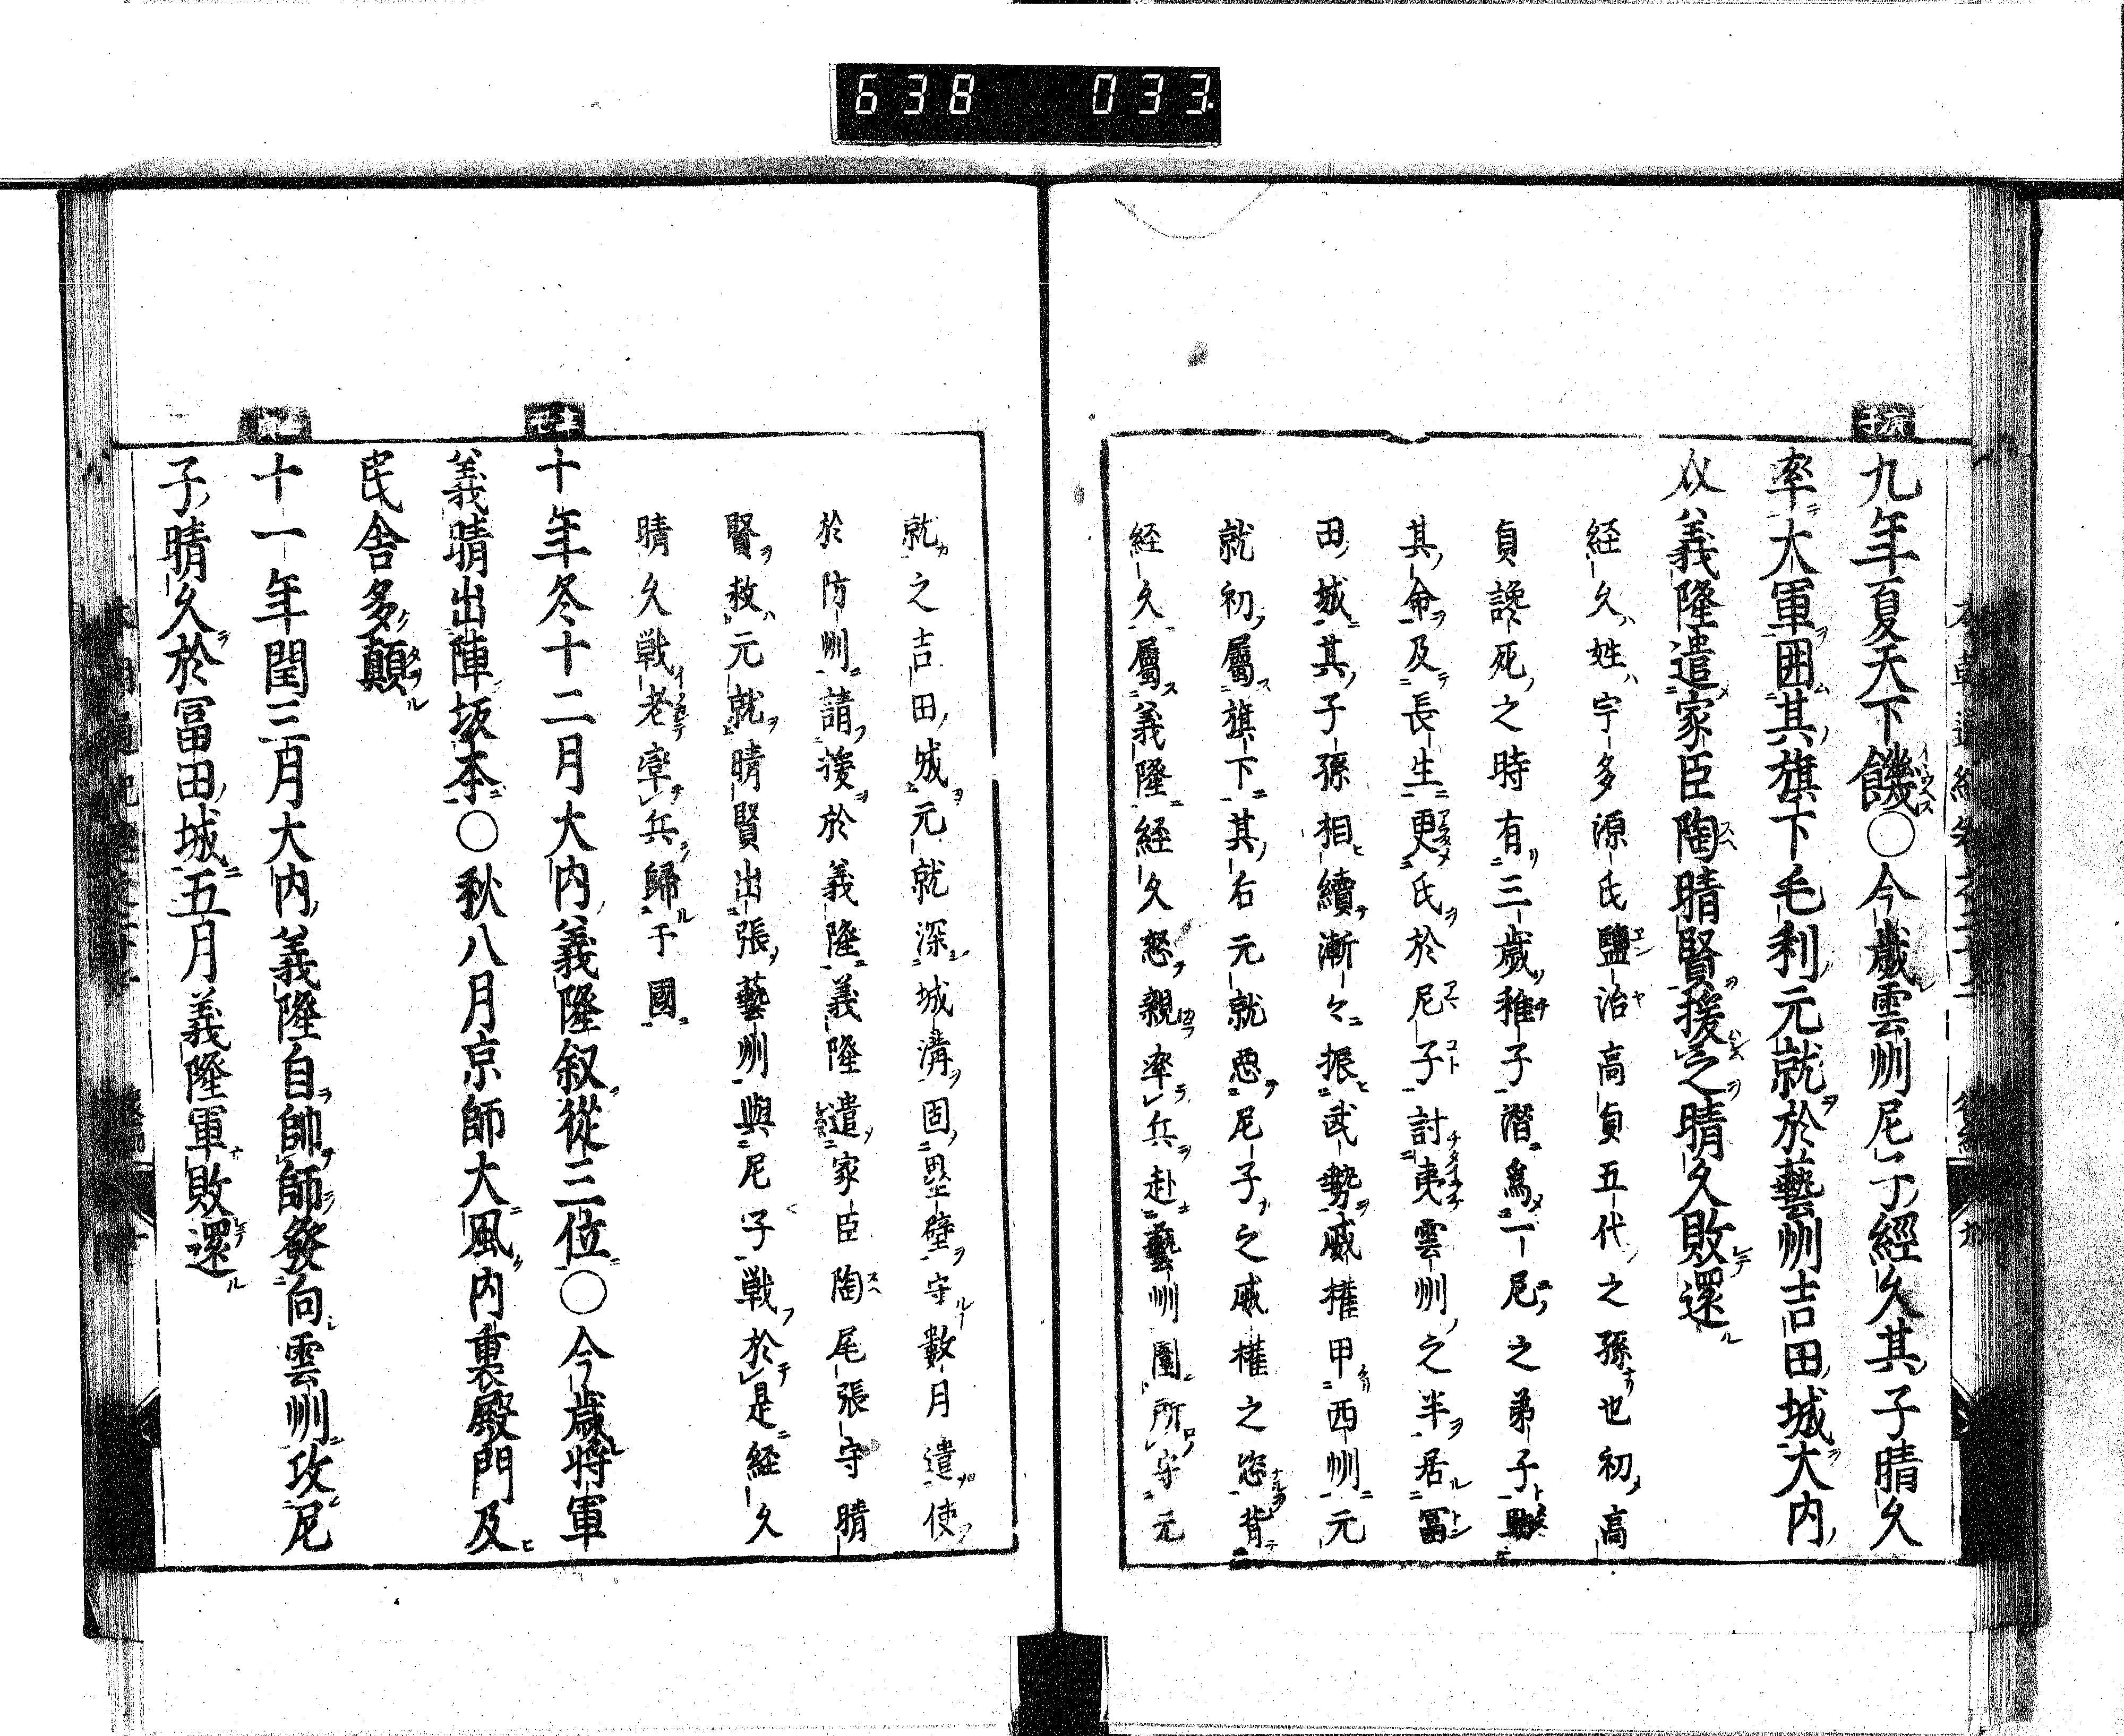 638 033
庚子
九年夏天下饑〇今歳雲州尼子經久其子晴久
率大軍囲其旗下毛利元就於藝州吉田城大内
義隆遣家臣陶晴賢援之晴久敗還
経久姓宇多源氏鹽治高貞五代之孫也初高
貞讒死之時有三歳稚子潜為一尼之弟子
其命及長生更氏於尼子討夷雲州之半居冨
田城其子孫相續漸々振武勢威權甲西州元
就初屬旗下其右元就惡尼子之威權之恣背
経久屬義隆経久怒親率兵赴藝州圍所守元
就之吉田城元就深城溝固壘壁守數月遣使
於防州請援於義隆義隆遣家臣陶尾張守晴
賢救元就晴賢出張藝州與尼子戦於是経久
晴久戦老牽兵歸于國
十年冬十二月大内義隆叙從三位〇今歳将軍
義晴出陣坂本〇秋八月京師大風内裏殿門及
民舎多顛
十一年閏三月大内義隆自帥師發向雲州攻尼
子晴久於冨田城五月義隆軍敗還